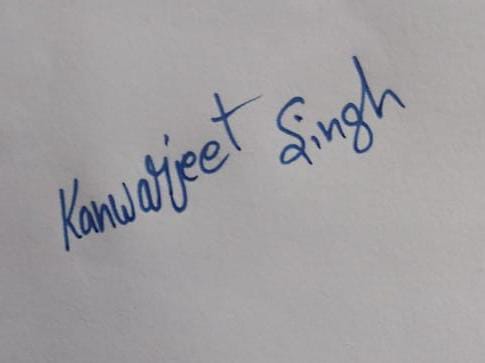 Kanwarjeet Singh